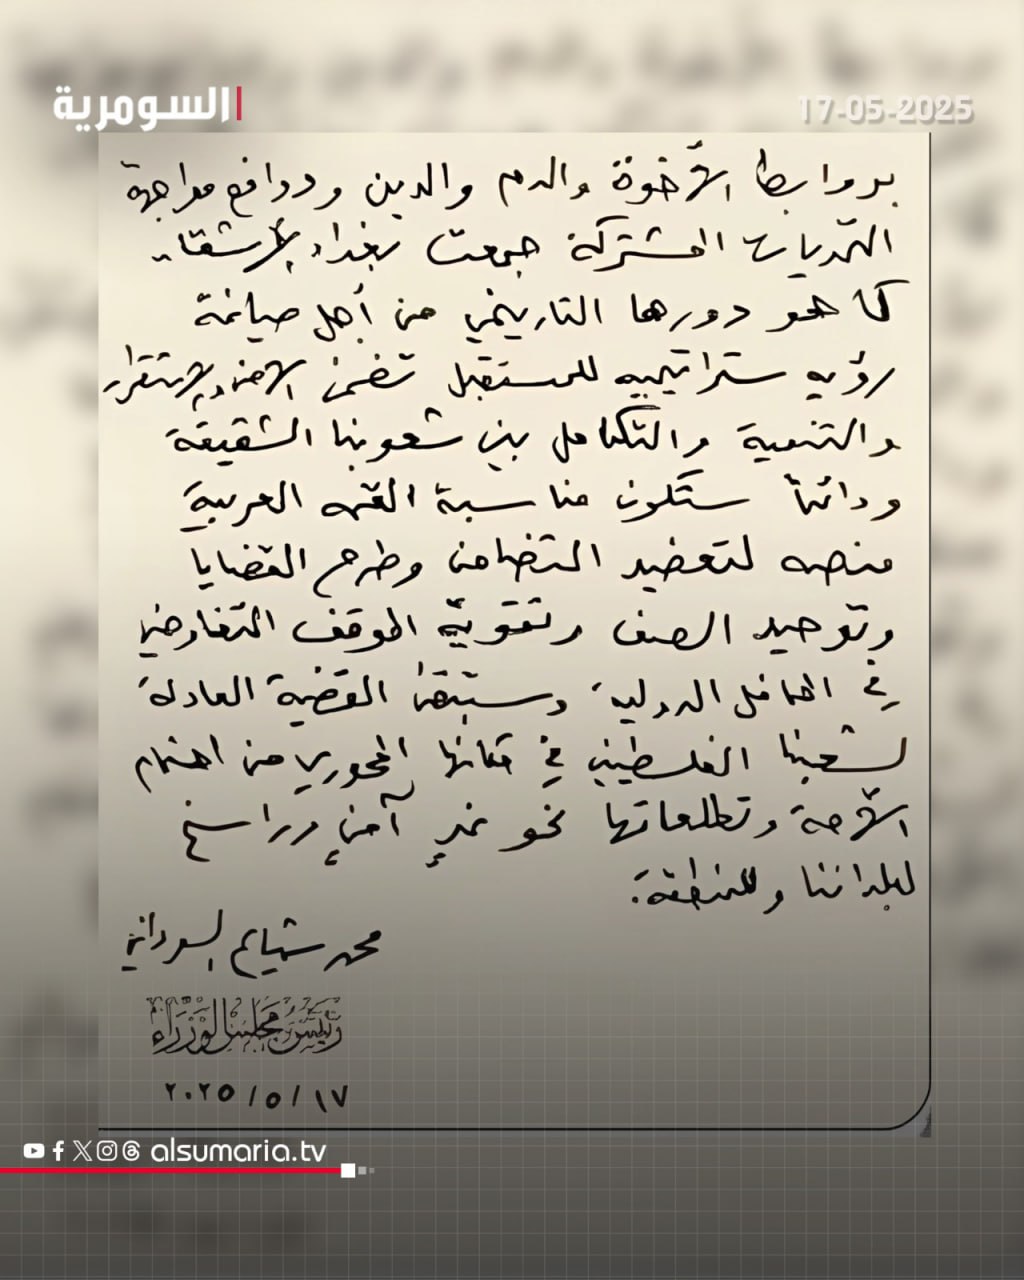 السومرية
17-05-2025
بروابط الأخوة والدم والدين ودوافع مواجهة
التحديات المشتركة جمعت بغداد الأشقاء
كما هو دورها التاريخي من أجل صياغة
رؤيه ستراتيجيه للمستقبل تضمن الأمن والاستقرار
والتنمية والتكامل بين شعوبنا الشقيقة
ودائماً ستكون مناسبة القمه العربية
منصه لتعضيد التضامن وطرح القضايا
وتوحيد الصف وتقوية الموقف التفاوضي
في المحافل الدوليه، وستبقى القضية العادلة
لشعبنا الفلسطيني في مكانها المحوري من اهتمام
الأمة وتطلعاتها نحو غدٍ آمنٍ وراسخ
لبلداننا وللمنطقة.
محمد شياع السوداني
رئيس مجلس الوزراء
٢٠٢٥/٥/١٧
alsumaria.tv